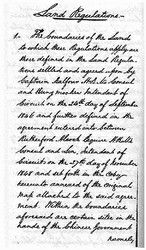 Land Regulations.
1. The boundaries of the Land
to which these Regulations apply are
those defined in the Land Regula-
tions settled and agreed upon by
Captain Balfour Her M's Consul
and Kung mookew Intendant of
Circuit on the 24th day of September
1846 and further defined in the
agreement entered into between
Rutherford Alcock Esquire Her M's
Consul and Lin, Intendant of
Circuit on the 27th day of November
1848 set forth in the copy
hereunto annexed of the original
Plan attached to the said agree-
ment. Within the boundaries
aforesaid are certain sites in the
hands of the Chinese Government
namely,